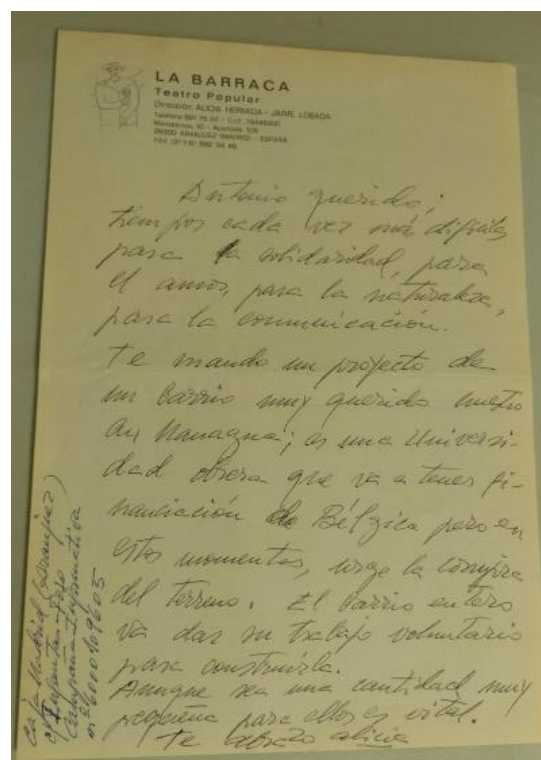 LA BARRACA
Teatro Popular
Dirección: ALICIA HERMIDA - JAIME LOSADA
28300 ARANJUEZ (MADRID) - ESPAÑA
Antonio querido;
tiempos cada vez más difíciles
para la solidaridad, para
el amor, para la naturaleza,
para la comunicación.
Te mando un proyecto de
un barrio muy querido nuestro
en Managua; es una Universi-
dad obrera que va a tener fi-
nanciación de Bélgica pero en
estos momentos, urge la compra
del terreno. El barrio entero
va dar su trabajo voluntario
para construirla.
Aunque sea una cantidad muy
pequeña para ellos es vital.
Te abrazo alicia
Caja Madrid (Aranjuez)
c/ Infantas
Campaña
nº 6000109605